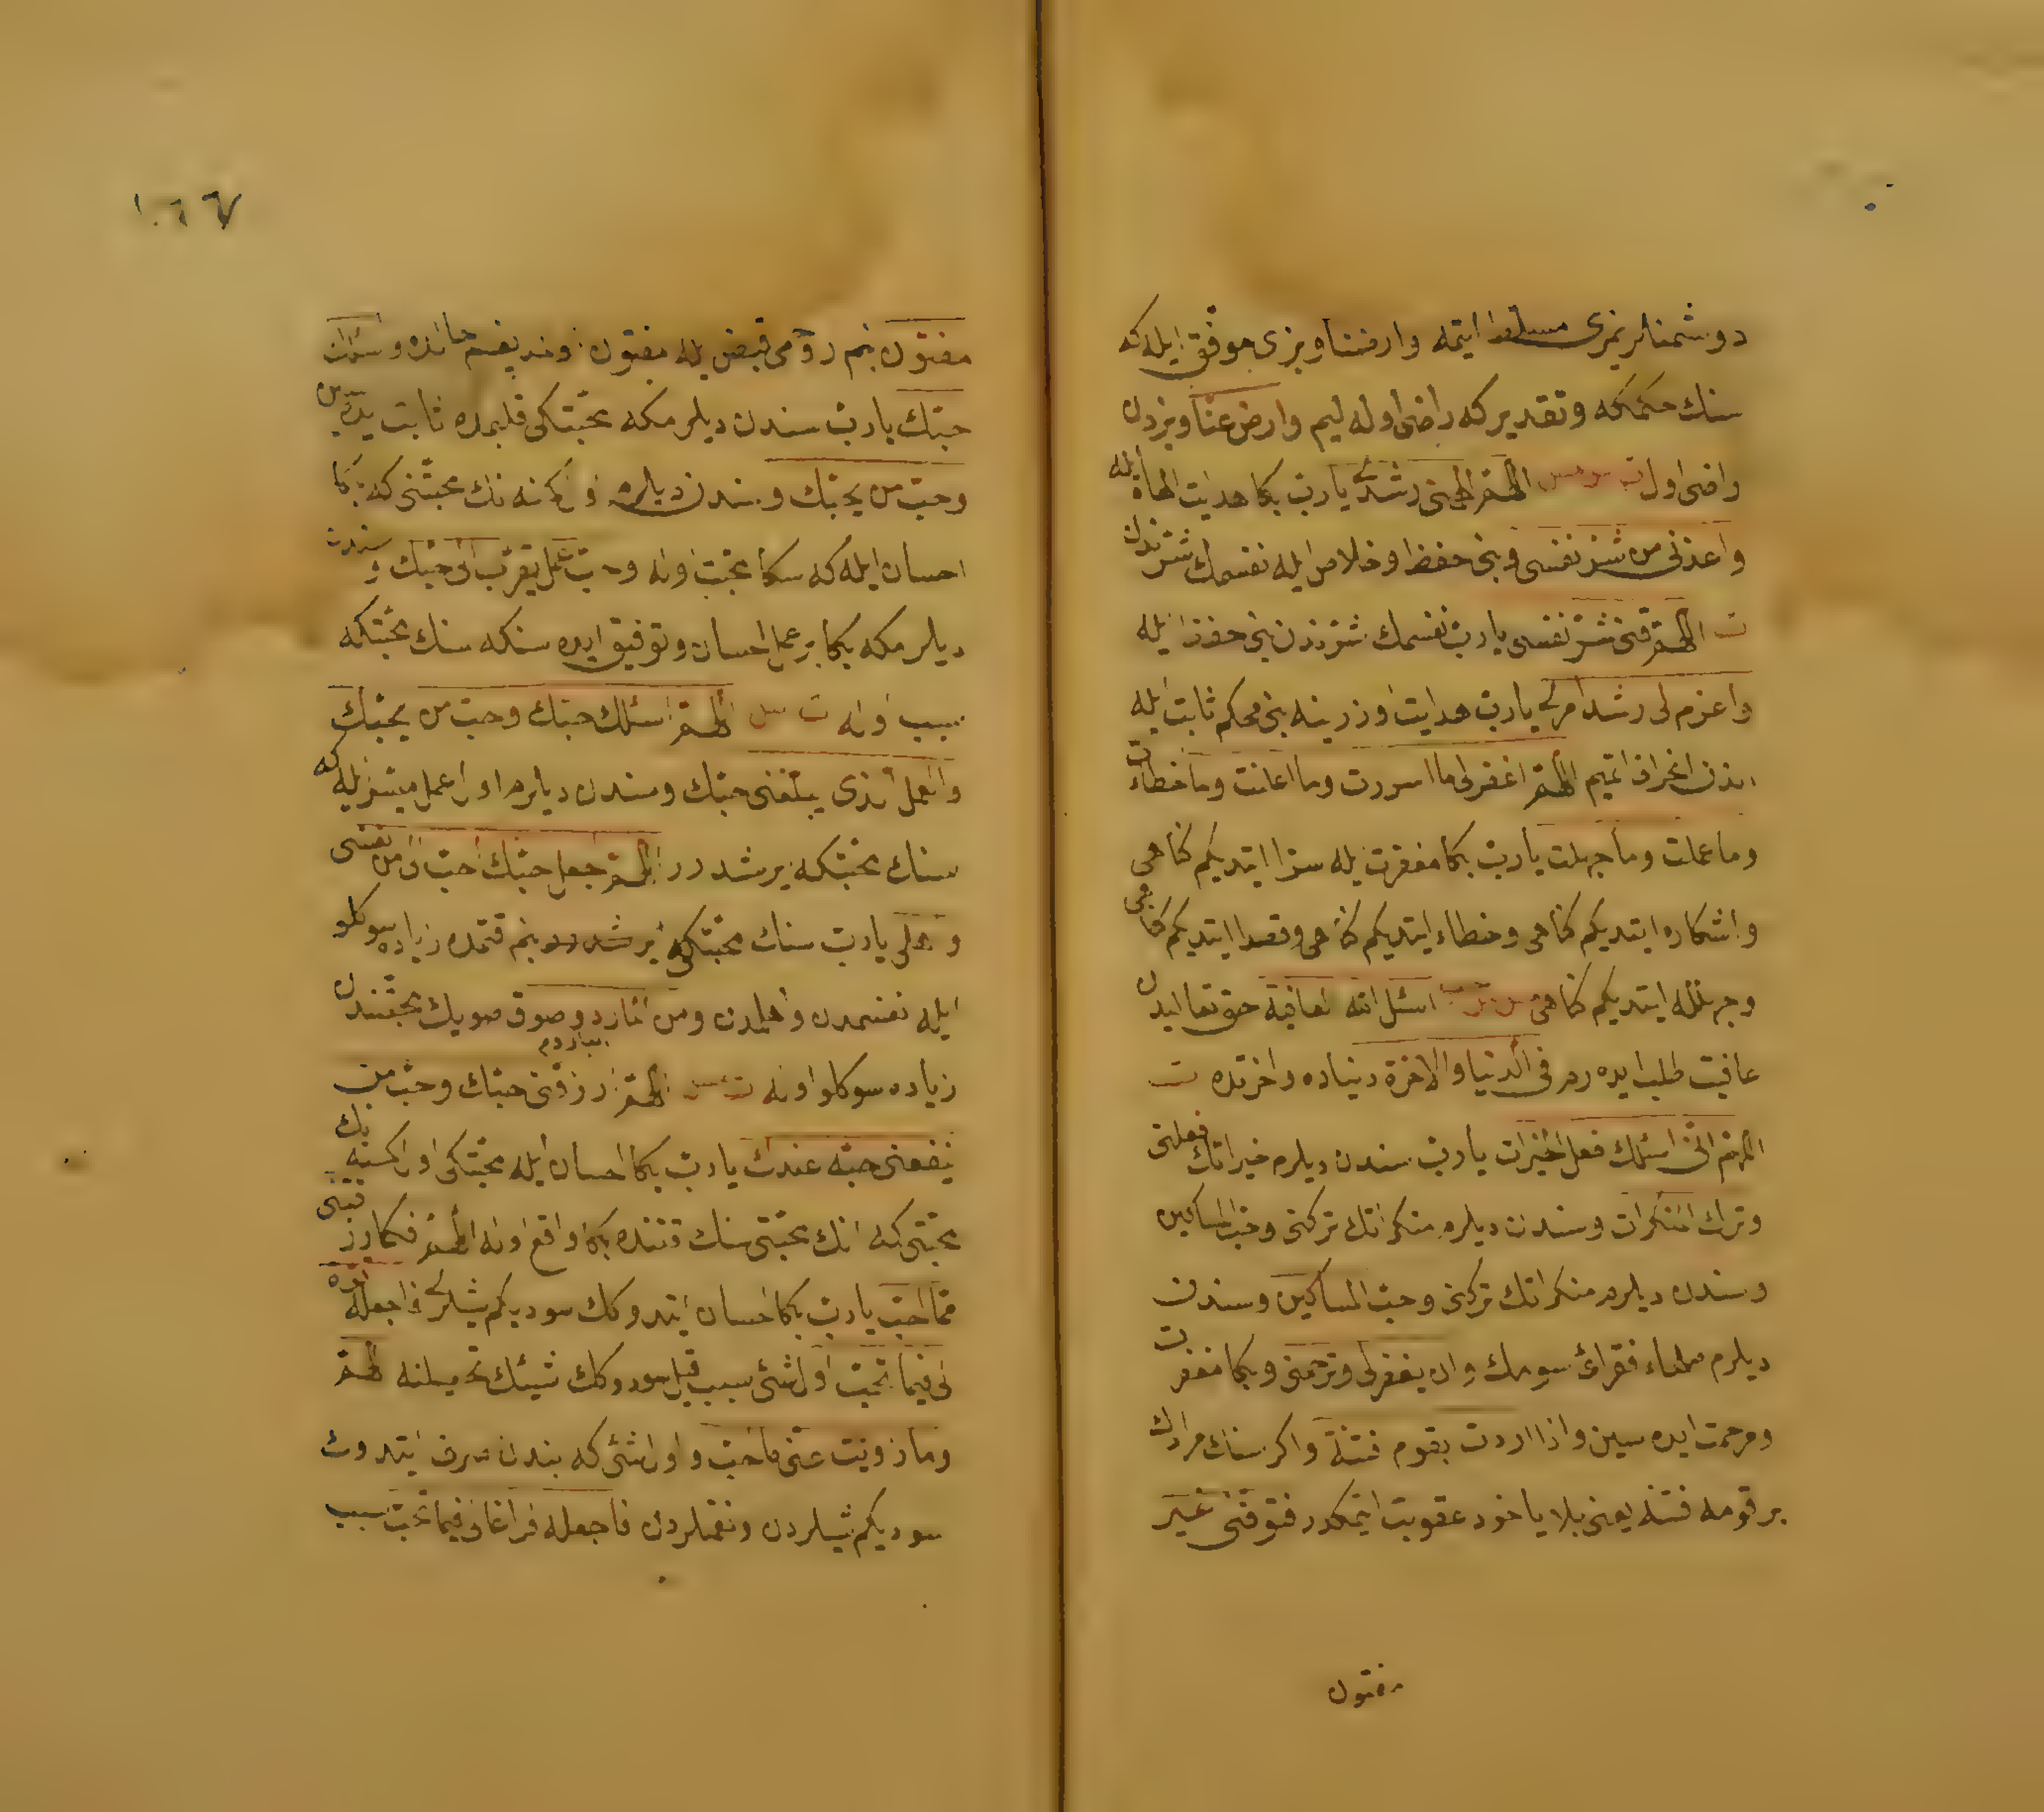 دوشمنلریمزی مسلط ایتمه وارضنا وبزی موفق ایله که
سنك حكمكه وتقدیركه راضی اوله لیم وارض عنا وبزدن
راضی اول ت س مس اللهم الهمنی رشدی یا رب بكا هدایت الهام ایله
واعذنی من شر نفسی وبنی حفظ وخلاص ایله نفسمك شرندن
ت اللهم قنی شر نفسی یا رب نفسمك شرندن بنی حفظ ایله
واعزم لی رشد امری یا رب هدایت اوزرینه بنی محكم ثابت ایله
اندن انحراف اتمیم اللهم اغفر لی ما اسررت وما اعلنت وما اخطأت
وما عملت وما جهلت یا رب بكا مغفرت ایله سرا ایتدیكم كناهی
واشكاره ایتدیكم كناهی وخطاء ایتدیكم كناهی وقصدا ایتدیكم كناهی
وجهلله ایتدیكم كناهی اسئل الله العافیة حق تعالیدن
عافیت طلب ایده رم فی الدنیا والاخرة دنیاده واخرتده ت
اللهم انی اسئلك فعل الخیرات یا رب سندن دیلرم خیراتك فعلنی
وترك المنكرات وسندن دیلرم منكراتك تركنی وحب المساكین
وسندن دیلرم منكراتك تركنی وحب المساكین وسندن
دیلرم فقرائ سومك وان یغفر لی وترحمنی وبكا مغفرت
ومرحمت ایده سین واذا اردت بقوم فتنة واكر سنك مرادك
بر قومه فتنه یعنی بلا یا خود عقوبت ایتمكدر فتوفنی غیر
مفتون
١٠٦٧
مفتون بنم روحمی قبض ایله مفتون واسئلك
حبك یا رب سندن دیلرمكه محبتكی قلبمده ثابت ایده سن
وحب من یحبك وسندن دیلرم اول كمسنه نك محبتنی كه بكا
احسان ایله كه سكا محبت اوله وحب عمل یقرب الی حبك وسندن
دیلرمكه بكا بر عمل احسان وتوفیق ایده سنكه سنك محبتكه
سبب اوله ت مس اللهم اسئلك حبك وحب من یحبك
والعمل الذی یبلغنی حبك وسندن دیلرم اول عمل میسر ایله كه
سنك محبتكه یرشدرر اللهم اجعل حبك احب الی من نفسی
واهلی یا رب سنك محبتكی بنم قتمده زیاده سوكلو
ایله نفسمدن واهلمدن ومن الماء البارد وصوق صویك محبتندن
زیاده سوكلو اوله ت مس اللهم ارزقنی حبك وحب من
ینفعنی حبه عندك یا رب بكا احسان ایله محبتكی اول كمسنه نك
محبتی كه انك محبتی سنك قتنده بكا واقع اوله اللهم فكما رزقتنی
مما احب یا رب بكا احسان ایتدوكك سودیكم شیلری فاجعله قوة
لی فیما تحب اول شئی سبب قیل سودوكك شیئك تحصیلنه اللهم
وما زویت عنی مما احب واول شئی كه بندن صرف ایتدوك
سودیكم شیلردن ونعمتلردن فاجعله فراغا لی فیما تحب سبب